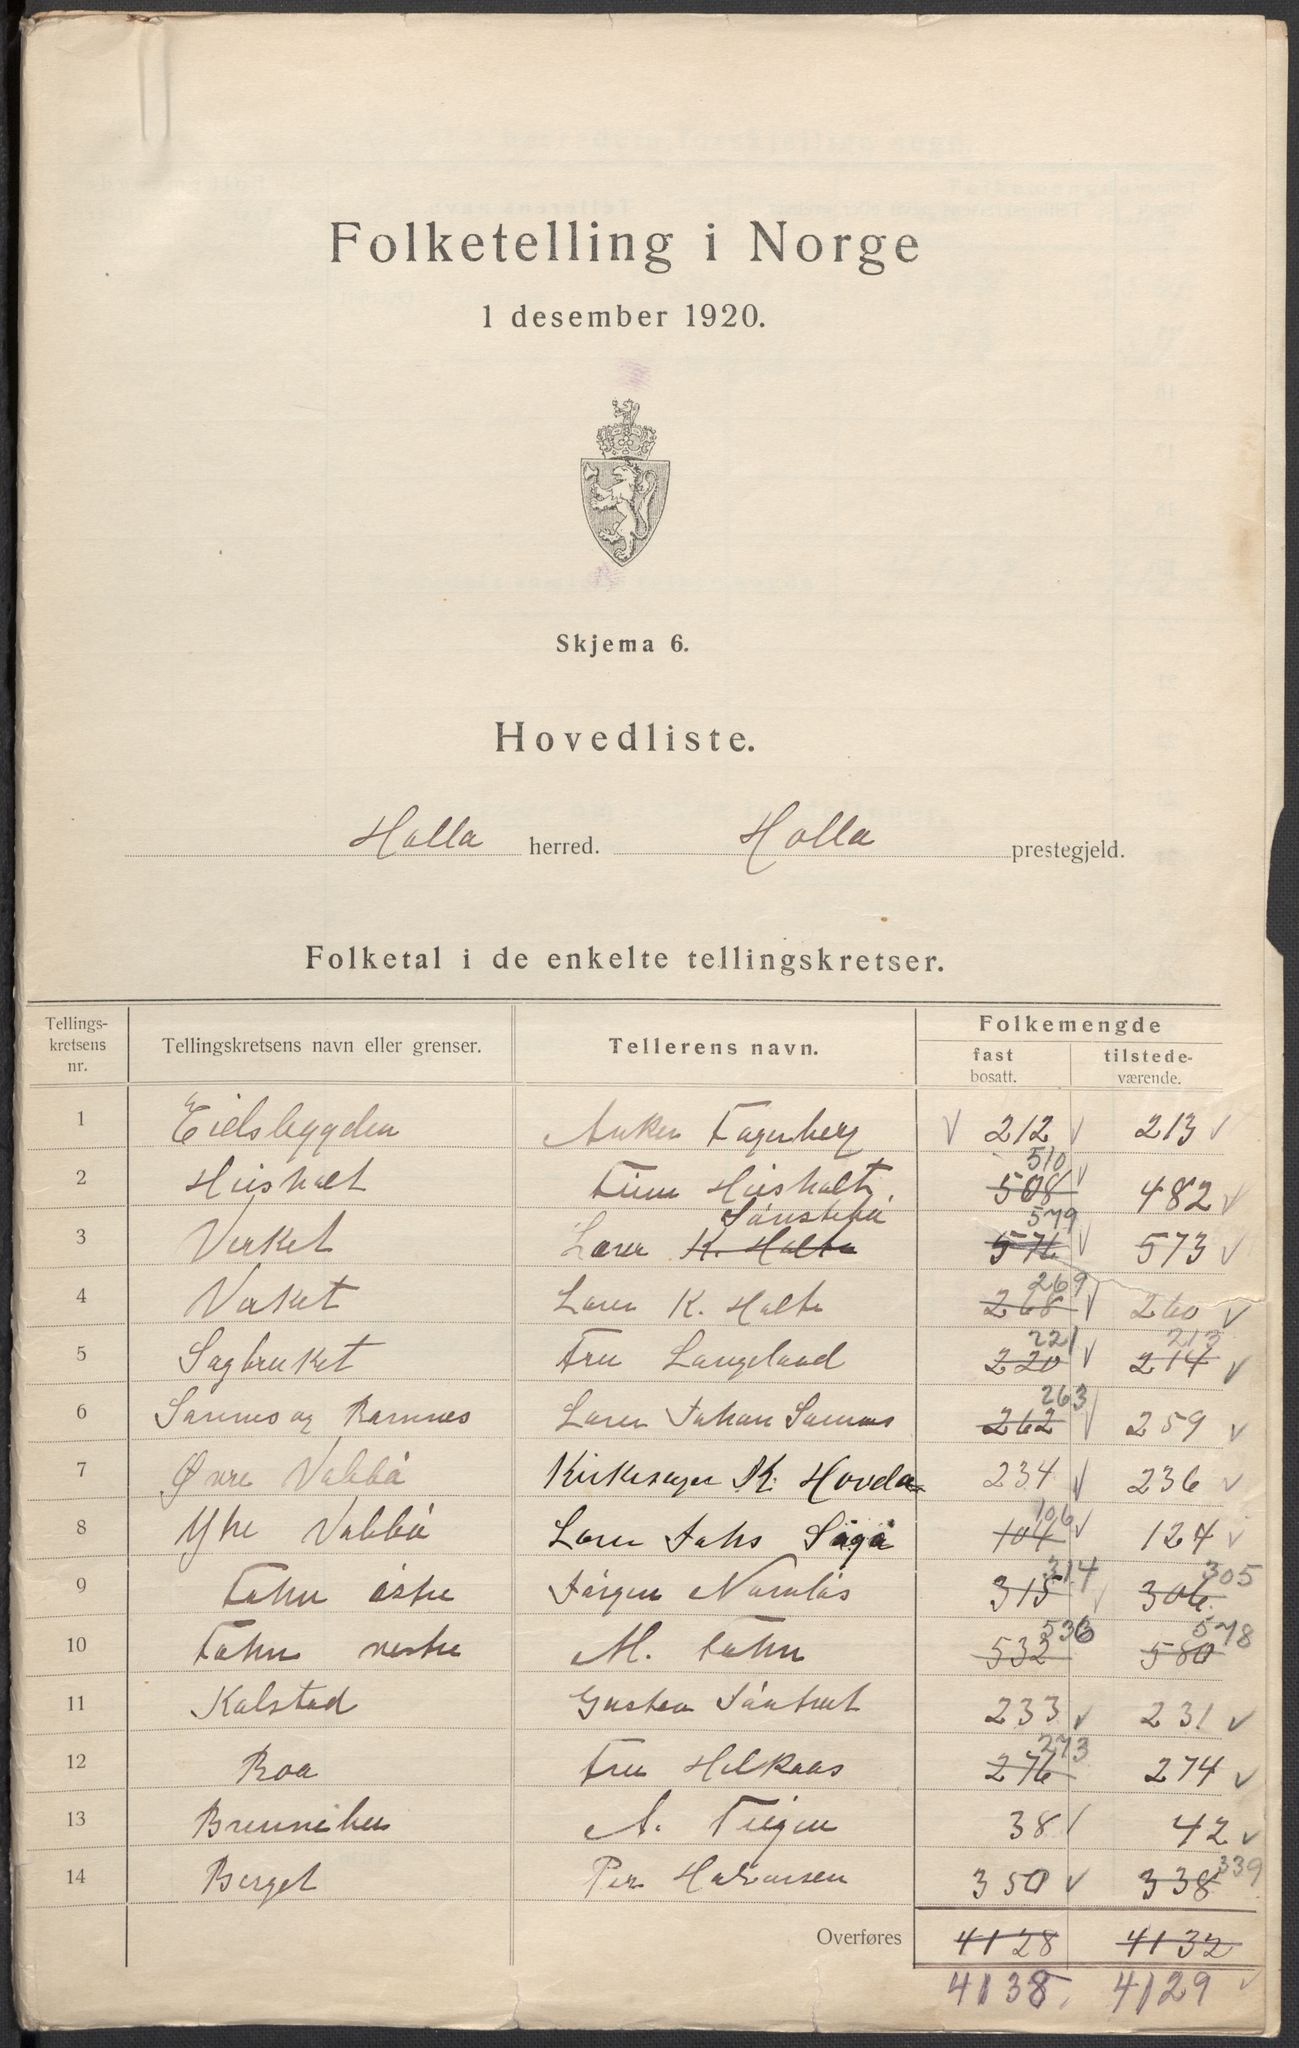 Folketelling i Norge
1 desember 1920.
Skjema 6.
Hovedliste.
Holla herred. Holla prestegjeld.
Folketal i de enkelte tellingskretser.
Tellings-
kretsens
nr.
Tellingskretsens navn eller grenser.
Tellerens navn.
Folkemengde
fast
bosatt.
tilstede-
værende.
1 Eidsbygden Anker Fagerberg 212 213
510
2 Hiisholt Hiisholt 508 482
Sönstebö 579
3 Verket Lærer K. Holte 576 573
269
4 Verket Lærer K. Holte 268 260
221 213
5 Sagbruket Fru Langeland 220 214
263
6 og Lærer Johan 262 259
7 Øvre Valebö Kirkesanger K. Hovda 234 236
106
8 Ytre Valebö Lærer Johs 104 124
314 305
9 Fahn östre Jörgen 315 306
536 578
10 Fahn vestre M. Fahn 532 580
11 Kalstad Gustav 233 231
273
12 Roa Fru 276 274
13 A. Teigen 38 42
339
14 Berget Per Halvorsen 350 338
Overføres 4128 4132
4138 4129